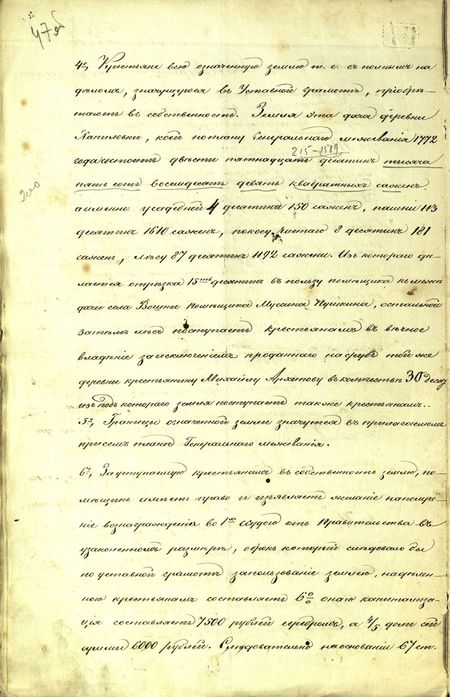 47об
4е, Крестьяне всю означенную землю т. е. съ полнымъ на
дѣломъ, значущуюся въ Уставной грамотѣ, прiобрѣ-
таютъ въ собственность. Земля эта дачи деревни
Пантловки, коей по плану Генеральнаго межеванiя 1772
215-1589
года состоитъ двѣсти пятнадцать десятинъ тысяча
пять сотъ восемдесятъ девять квадратныхъ саженъ.
а именно усадебной 4 десятины 150 саженъ, пашни 113
десятинъ 1610 саженъ, покосу чистаго 8 десятинъ 181
сажень, лѣсу 87 десятинъ 1192 сажени. Изъ котораго дѣ-
лается отрѣзка 15 десятинъ въ пользу помѣщика къ межѣ
дачи села помѣщика Мусина Пушкина, остальной
затемъ лѣсъ поступаетъ крестьянамъ въ вѣчное
владѣнiе за исключенiемъ проданнаго на срубъ той же
деревни крестьянину Михайлу Архипову въ количествѣ 30 десят
изъ подъ котораго земля поступаетъ также крестьянамъ.
5е, Границы означенной земли значутся въ прилагаемомъ
при семъ планѣ Генеральнаго межеванiя.
6е, За уступаемую крестьянамъ въ собственность землю, по-
мѣщикъ имѣетъ право и изъявляетъ желанiе на получе-
нiе вознагражденiя во 1хъ ссудою отъ Правительства въ
узаконенномъ размѣрѣ, оброкъ который слѣдовало бы
по уставной грамотѣ за пользованiе землею, надѣлен-
ною крестьянамъ составляетъ 6% онаго капитализа-
цiя составляетъ 7500 рублей серебромъ, а 4/5 доли сей
суммы 6000 рублей. Слѣдовательно на основанiи 67 ст.